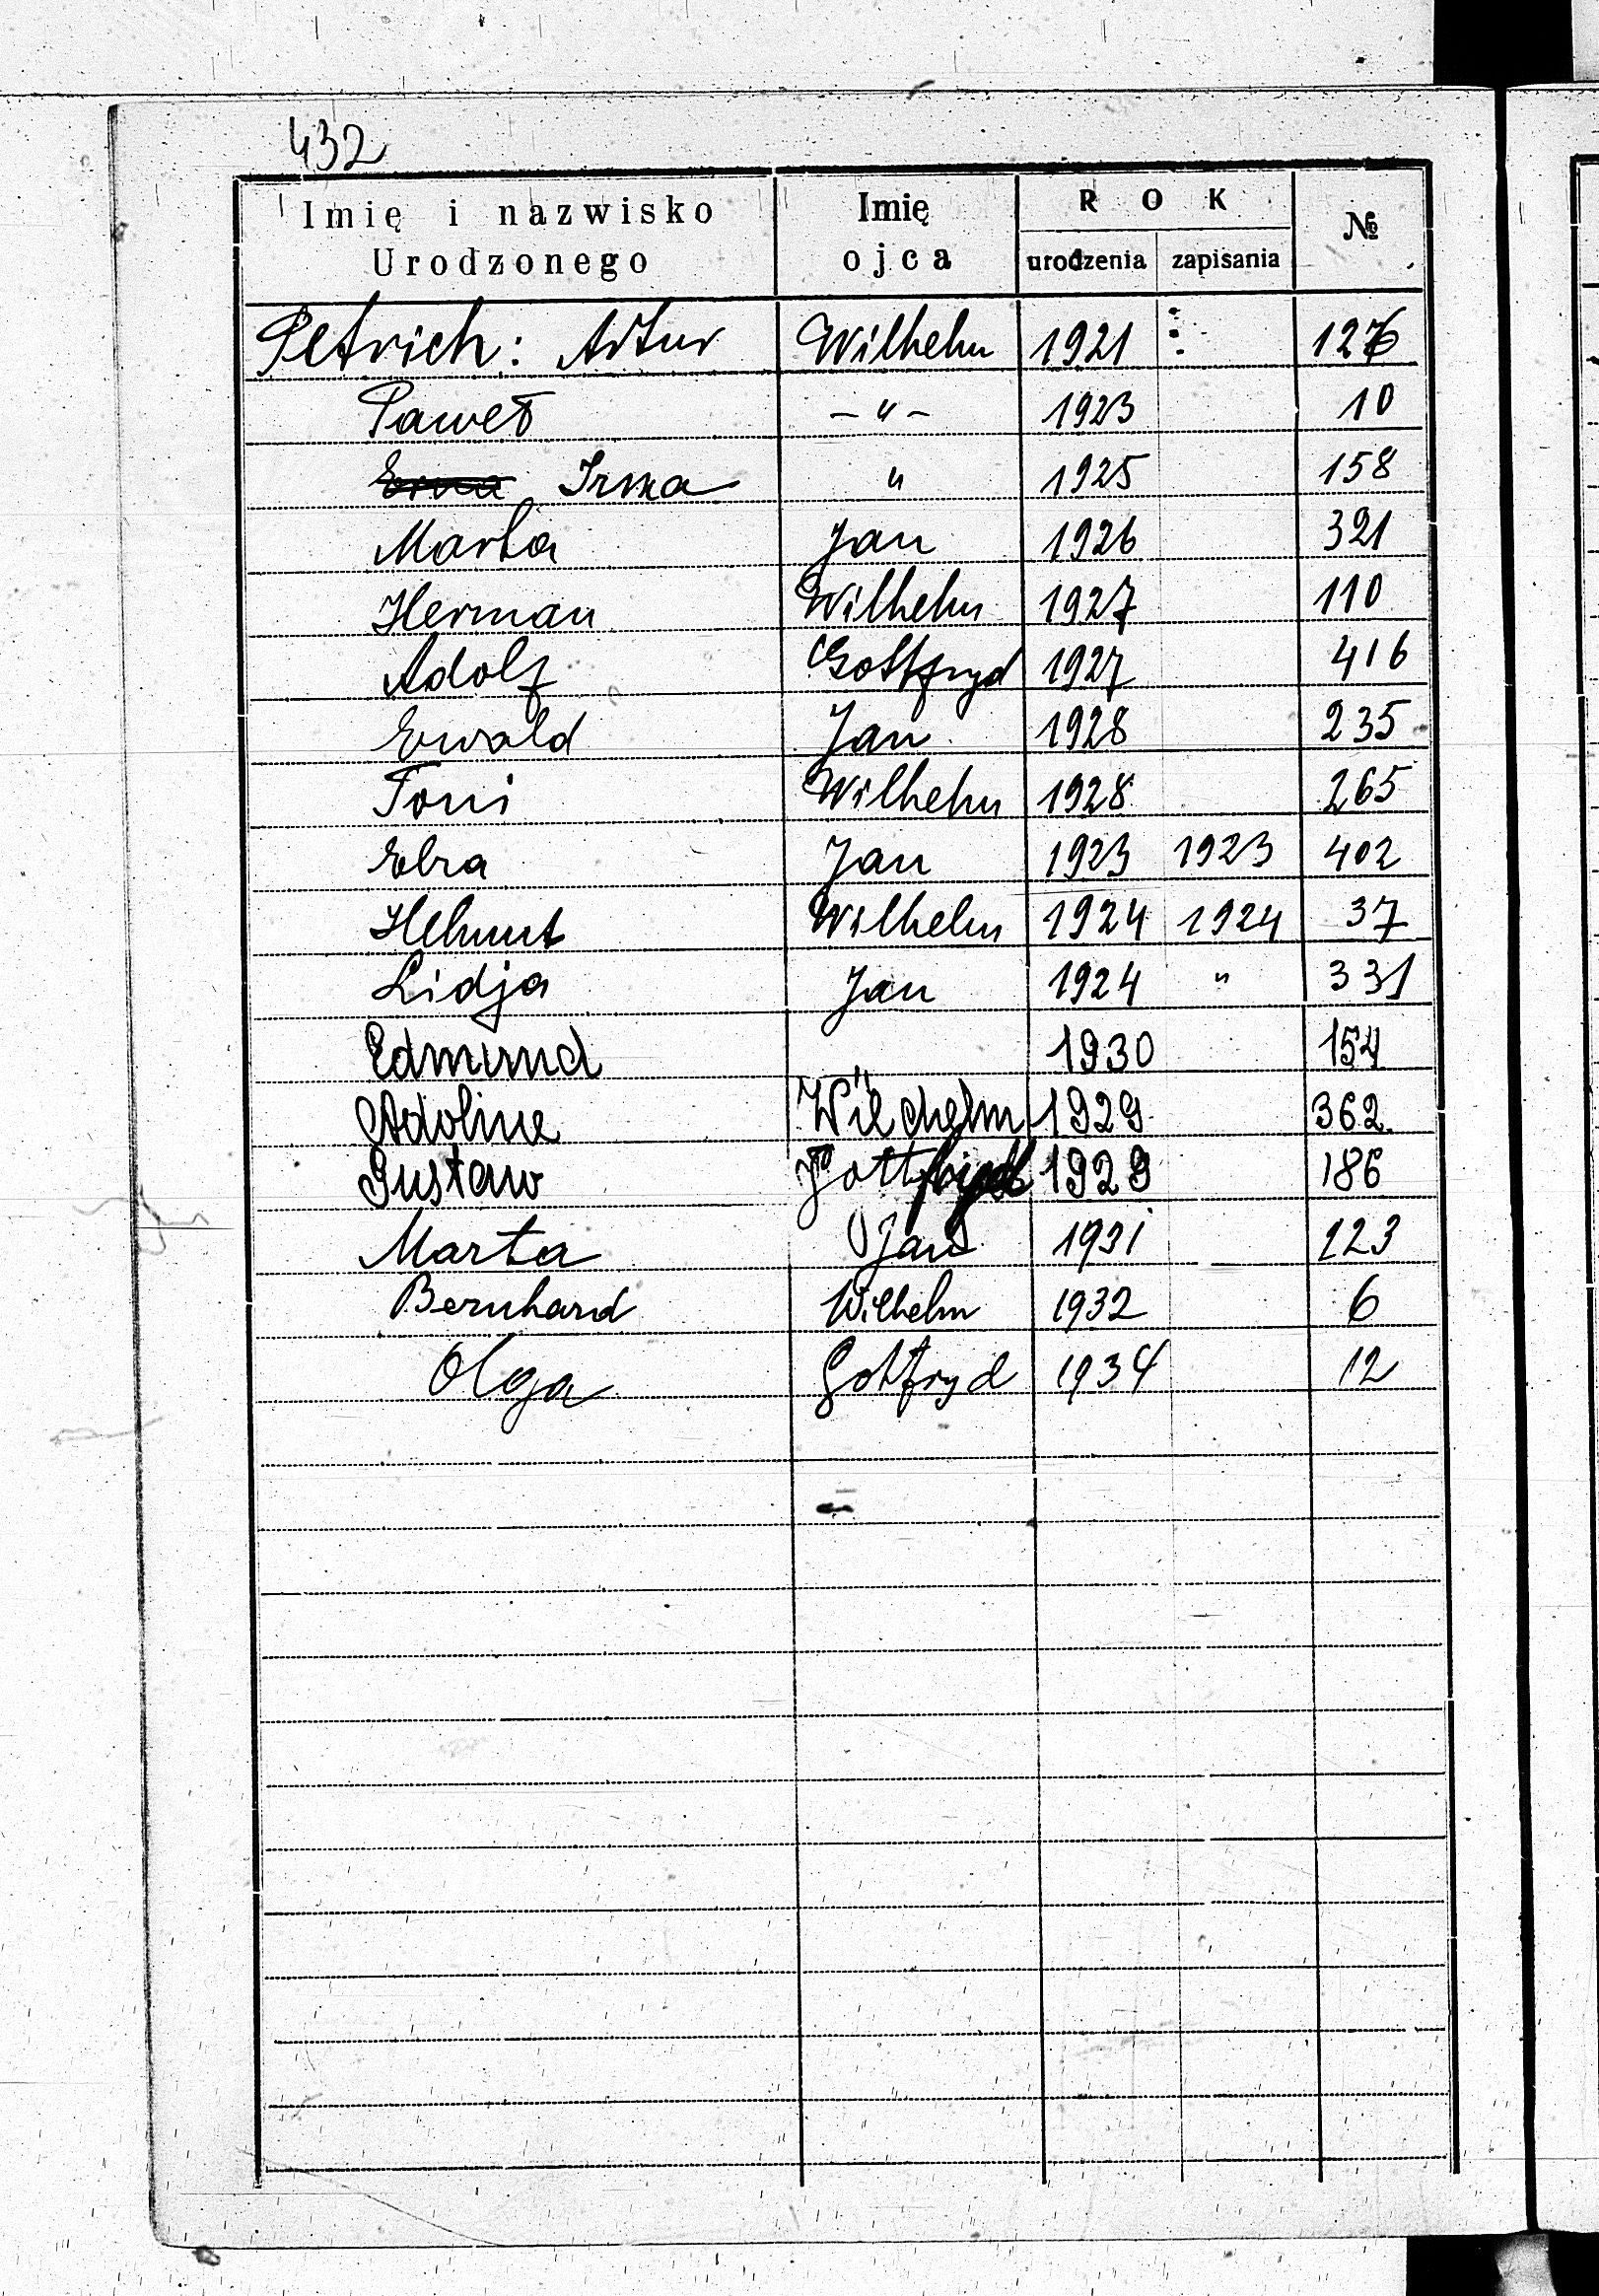 432
Imię i nazwisko Urodzonego Imię ojca ROK urodzenia zapisania №
Petrich: Artur Wilhelm 1921 : 126
Paweł – " – 1923 10
Erna Irma " 1925 158
Marta Jan 1926 321
Herman Wilhelm 1927 110
Adolf Gottfryd 1927 416
Ewald Jan 1928 235
Toni Wilhelm 1928 265
Elza Jan 1923 1923 402
Helmut Wilhelm 1924 1924 37
Lidja Jan 1924 " 331
Edmund " 1930 154
Adoline Wilchelm 1929 362
Gustaw 1929 186
Marta Jan 1931 123
Bernhard Wilhelm 1932 6
Olga Gotfryd 1934 12